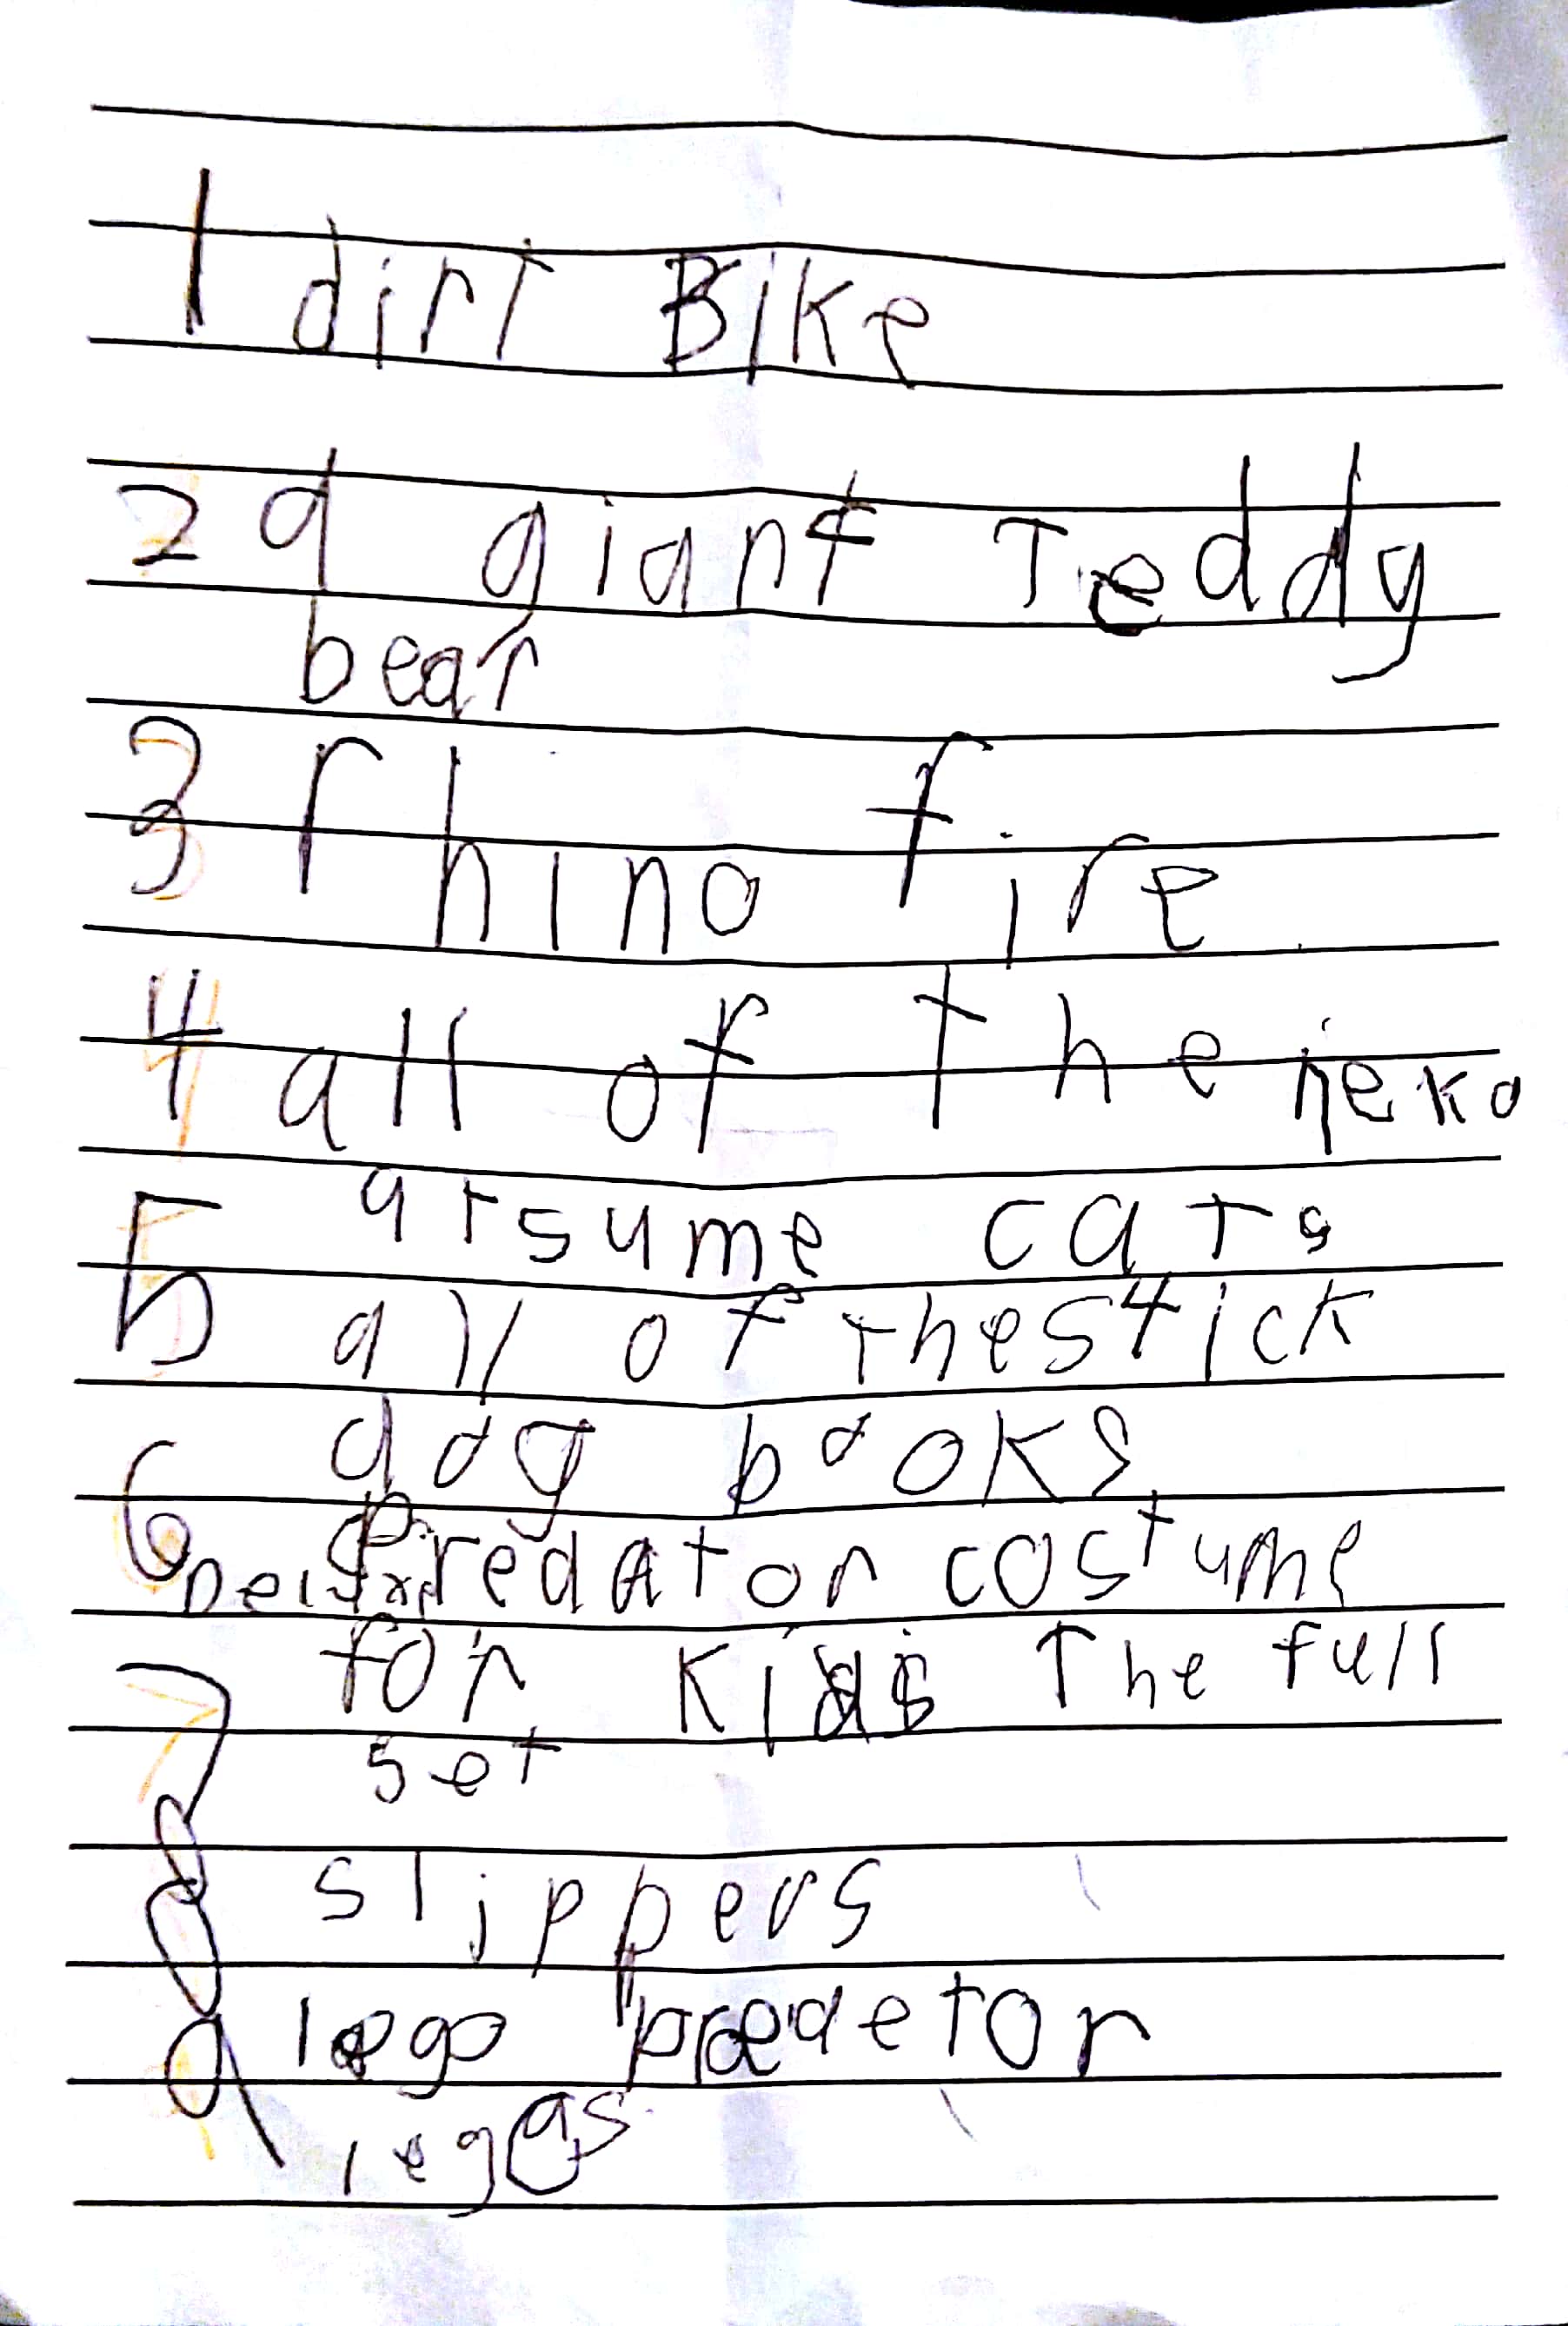 1 dirt Bike
2 a giant Teddy
bear
3 rhino fire
4 all of the neko
5 atsume cats
all of the stick
dog books
6 Predator costume
for kids The full
7 set
8 slippers
9 lego predetor
legos